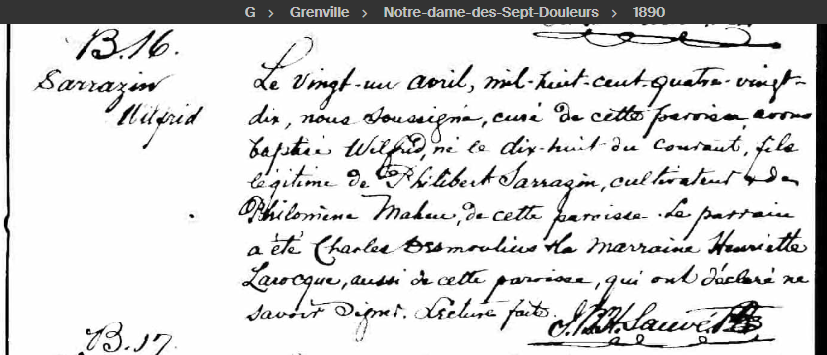 G > Grenville > Notre-dame-des-Sept-Douleurs > 1890
B.16.
Sarrazin
Wilfrid
Le vingt-un avril, mil-huit-cent-quatre-vingt-
dix, nous soussigné, curé de cette paroisse avons
baptisé Wilfrid, né le dix-huit du courant, fils
légitime de Philibert Sarrazin, cultivateur & de
Philomène Maheu, de cette paroisse. Le parrain
a été Charles Desmoulins & la marraine Henriette
Larocque, aussi de cette paroisse, qui ont déclaré ne
savoir signer. Lecture faite.
J. B. H. Sauvé Ptre
B.17.